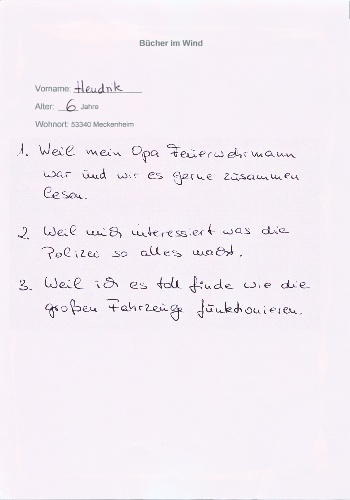 Bücher im Wind
Vorname: Hendrik
Alter: 6 Jahre
Wohnort: 53340 Meckenheim
1. Weil mein Opa Feuerwehrmann
war und wir es gerne zusammen
lesen.
2. Weil mich interessiert was die
Polizei so alles macht.
3. Weil ich es toll finde wie die
großen Fahrzeuge funktionieren.